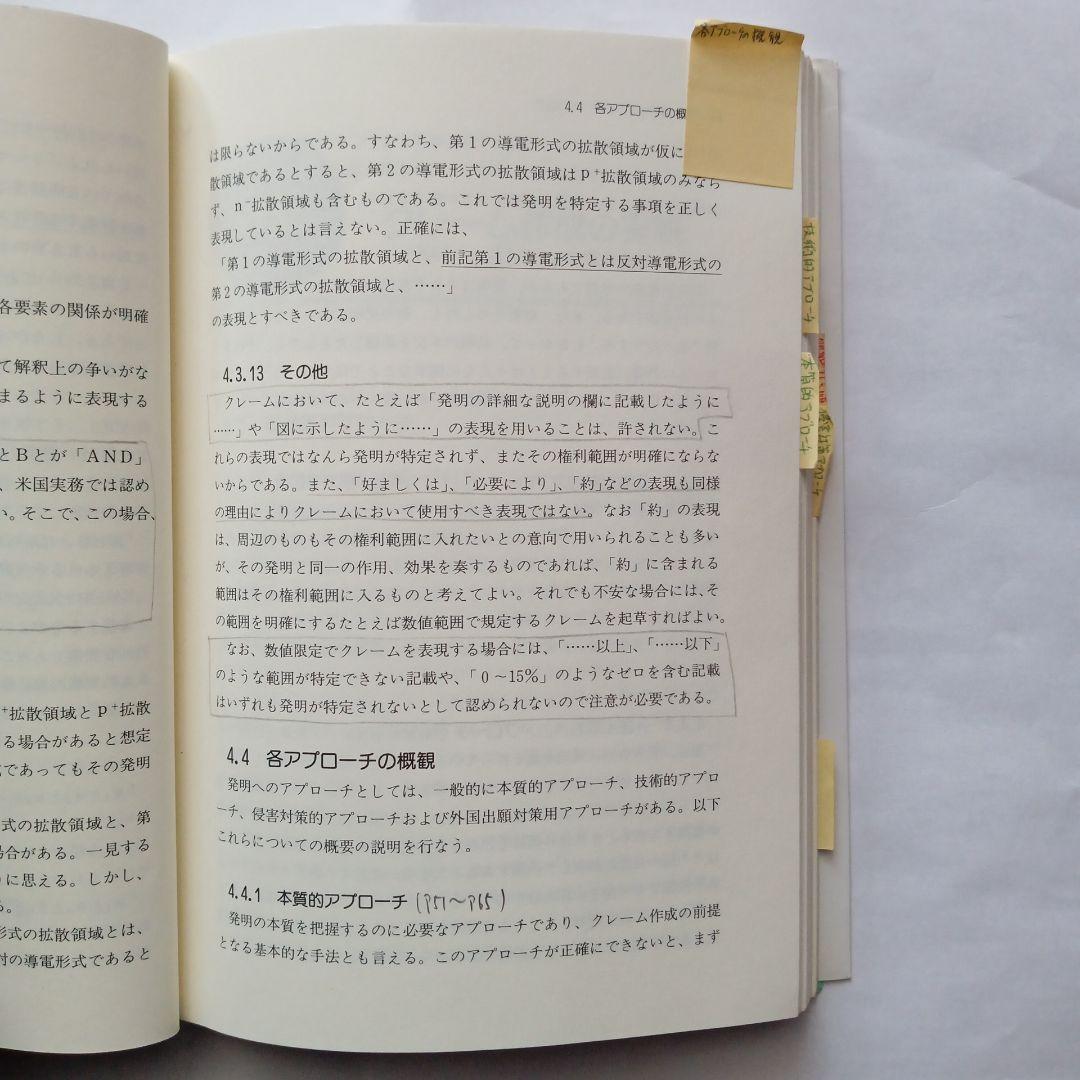 各要素の関係が明確
て解釈上の争いがな
まるように表現する
とBとが「AND」
、米国実務では認め
い。そこで、この場合、
⁺拡散領域とp⁺拡散
る場合があると想定
であってもその発明
式の拡散領域と、第
場合がある。一見する
に思える。しかし、
る。
形式の拡散領域とは、
対の導電形式であると
各アプローチの概観
4.4 各アプローチの概
は限らないからである。すなわち、第1の導電形式の拡散領域が仮に
散領域であるとすると、第2の導電形式の拡散領域はp⁺拡散領域のみなら
ず、n⁻拡散領域も含むものである。これでは発明を特定する事項を正しく
表現しているとは言えない。正確には、
「第1の導電形式の拡散領域と、前記第1の導電形式とは反対導電形式の
第2の導電形式の拡散領域と、……」
の表現とすべきである。
4.3.13 その他
クレームにおいて、たとえば「発明の詳細な説明の欄に記載したように
……」や「図に示したように……」の表現を用いることは、許されない。こ
れらの表現ではなんら発明が特定されず、またその権利範囲が明確にならな
いからである。また、「好ましくは」、「必要により」、「約」などの表現も同様
の理由によりクレームにおいて使用すべき表現ではない。なお「約」の表現
は、周辺のものもその権利範囲に入れたいとの意向で用いられることも多い
が、その発明と同一の作用、効果を奏するものであれば、「約」に含まれる
範囲はその権利範囲に入るものと考えてよい。それでも不安な場合には、そ
の範囲を明確にするたとえば数値範囲で規定するクレームを起草すればよい。
なお、数値限定でクレームを表現する場合には、「……以上」、「……以下」
のような範囲が特定できない記載や、「0～15%」のようなゼロを含む記載
はいずれも発明が特定されないとして認められないので注意が必要である。
4.4 各アプローチの概観
発明へのアプローチとしては、一般的に本質的アプローチ、技術的アプロ
ーチ、侵害対策的アプローチおよび外国出願対策用アプローチがある。以下
これらについての概要の説明を行なう。
4.4.1 本質的アプローチ (P51～P65)
発明の本質を把握するのに必要なアプローチであり、クレーム作成の前提
となる基本的な手法とも言える。このアプローチが正確にできないと、まず
技術的アプローチ
本質的アプローチ